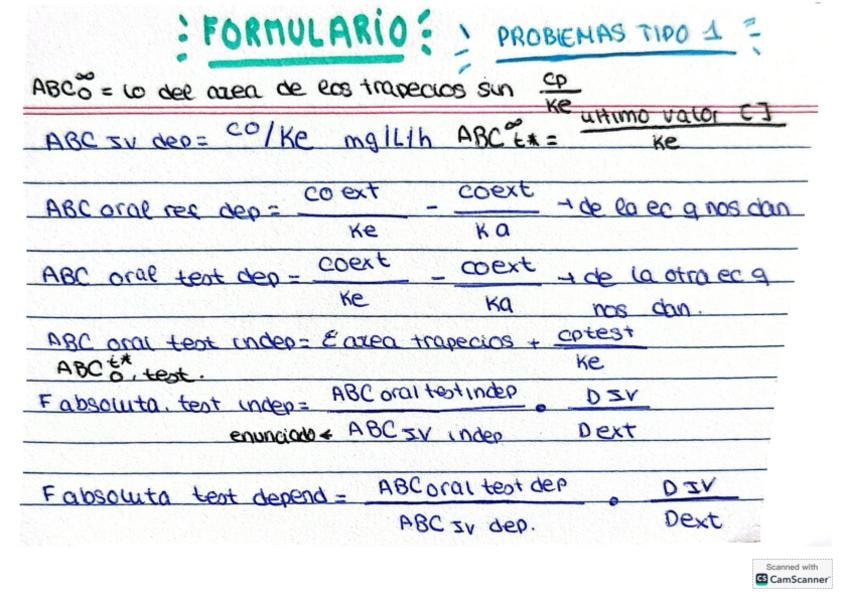 FORMULARIO PROBLEMAS TIPO 1
ABC₀^∞ = lo del area de los trapecios sin cp/Ke
ABC IV dep = CO/Ke mg/L/h ABC_t*^∞ = ultimo valor [ ]/Ke
ABC oral ref dep = CO ext/Ke - COext/Ka → de la ec q nos dan
ABC oral test dep = COext/Ke - COext/Ka → de la otra ec q
nos dan.
ABC oral test indep = Σ area trapecios + cptest/Ke
ABC₀^t*, test.
F absoluta. test indep = ABC oral test indep/ABC IV indep • D IV/Dext
enunciado ←
F absoluta test depend = ABC oral test dep/ABC IV dep. • D IV/Dext
Scanned with
CS CamScanner